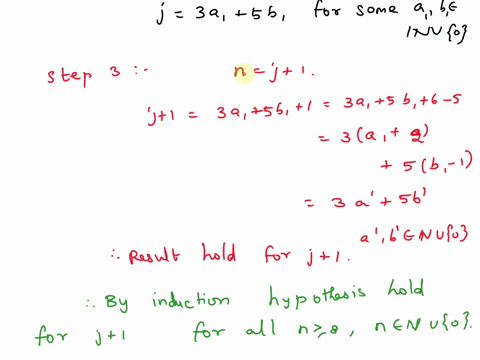 j = 3a₁ + 5b₁ for some a₁, b₁ ∈
ℕ ∪ {0}
Step 3 :- n = j + 1.
j+1 = 3a₁ + 5b₁ + 1 = 3a₁ + 5b₁ + 6 - 5
= 3(a₁ + 2)
+ 5(b₁ - 1)
= 3a' + 5b'
a', b' ∈ N ∪ {0}
∴ Result hold for j + 1.
∴ By induction hypothesis hold
for j + 1 for all n ≥ 8, n ∈ N ∪ {0}.